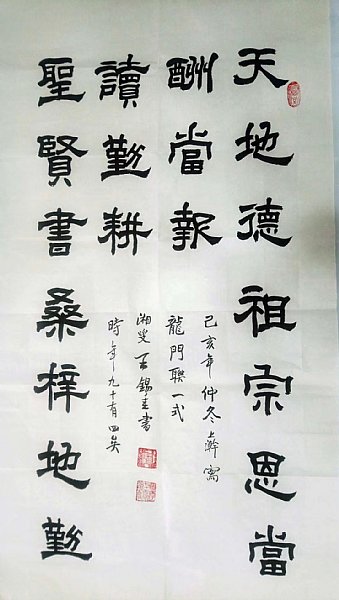 天地德祖宗恩當
酬當報
聖賢書桑梓地勤
讀勤耕
己亥年仲冬上
龍門聯一式
湘叟王錫書
時年九十有四矣